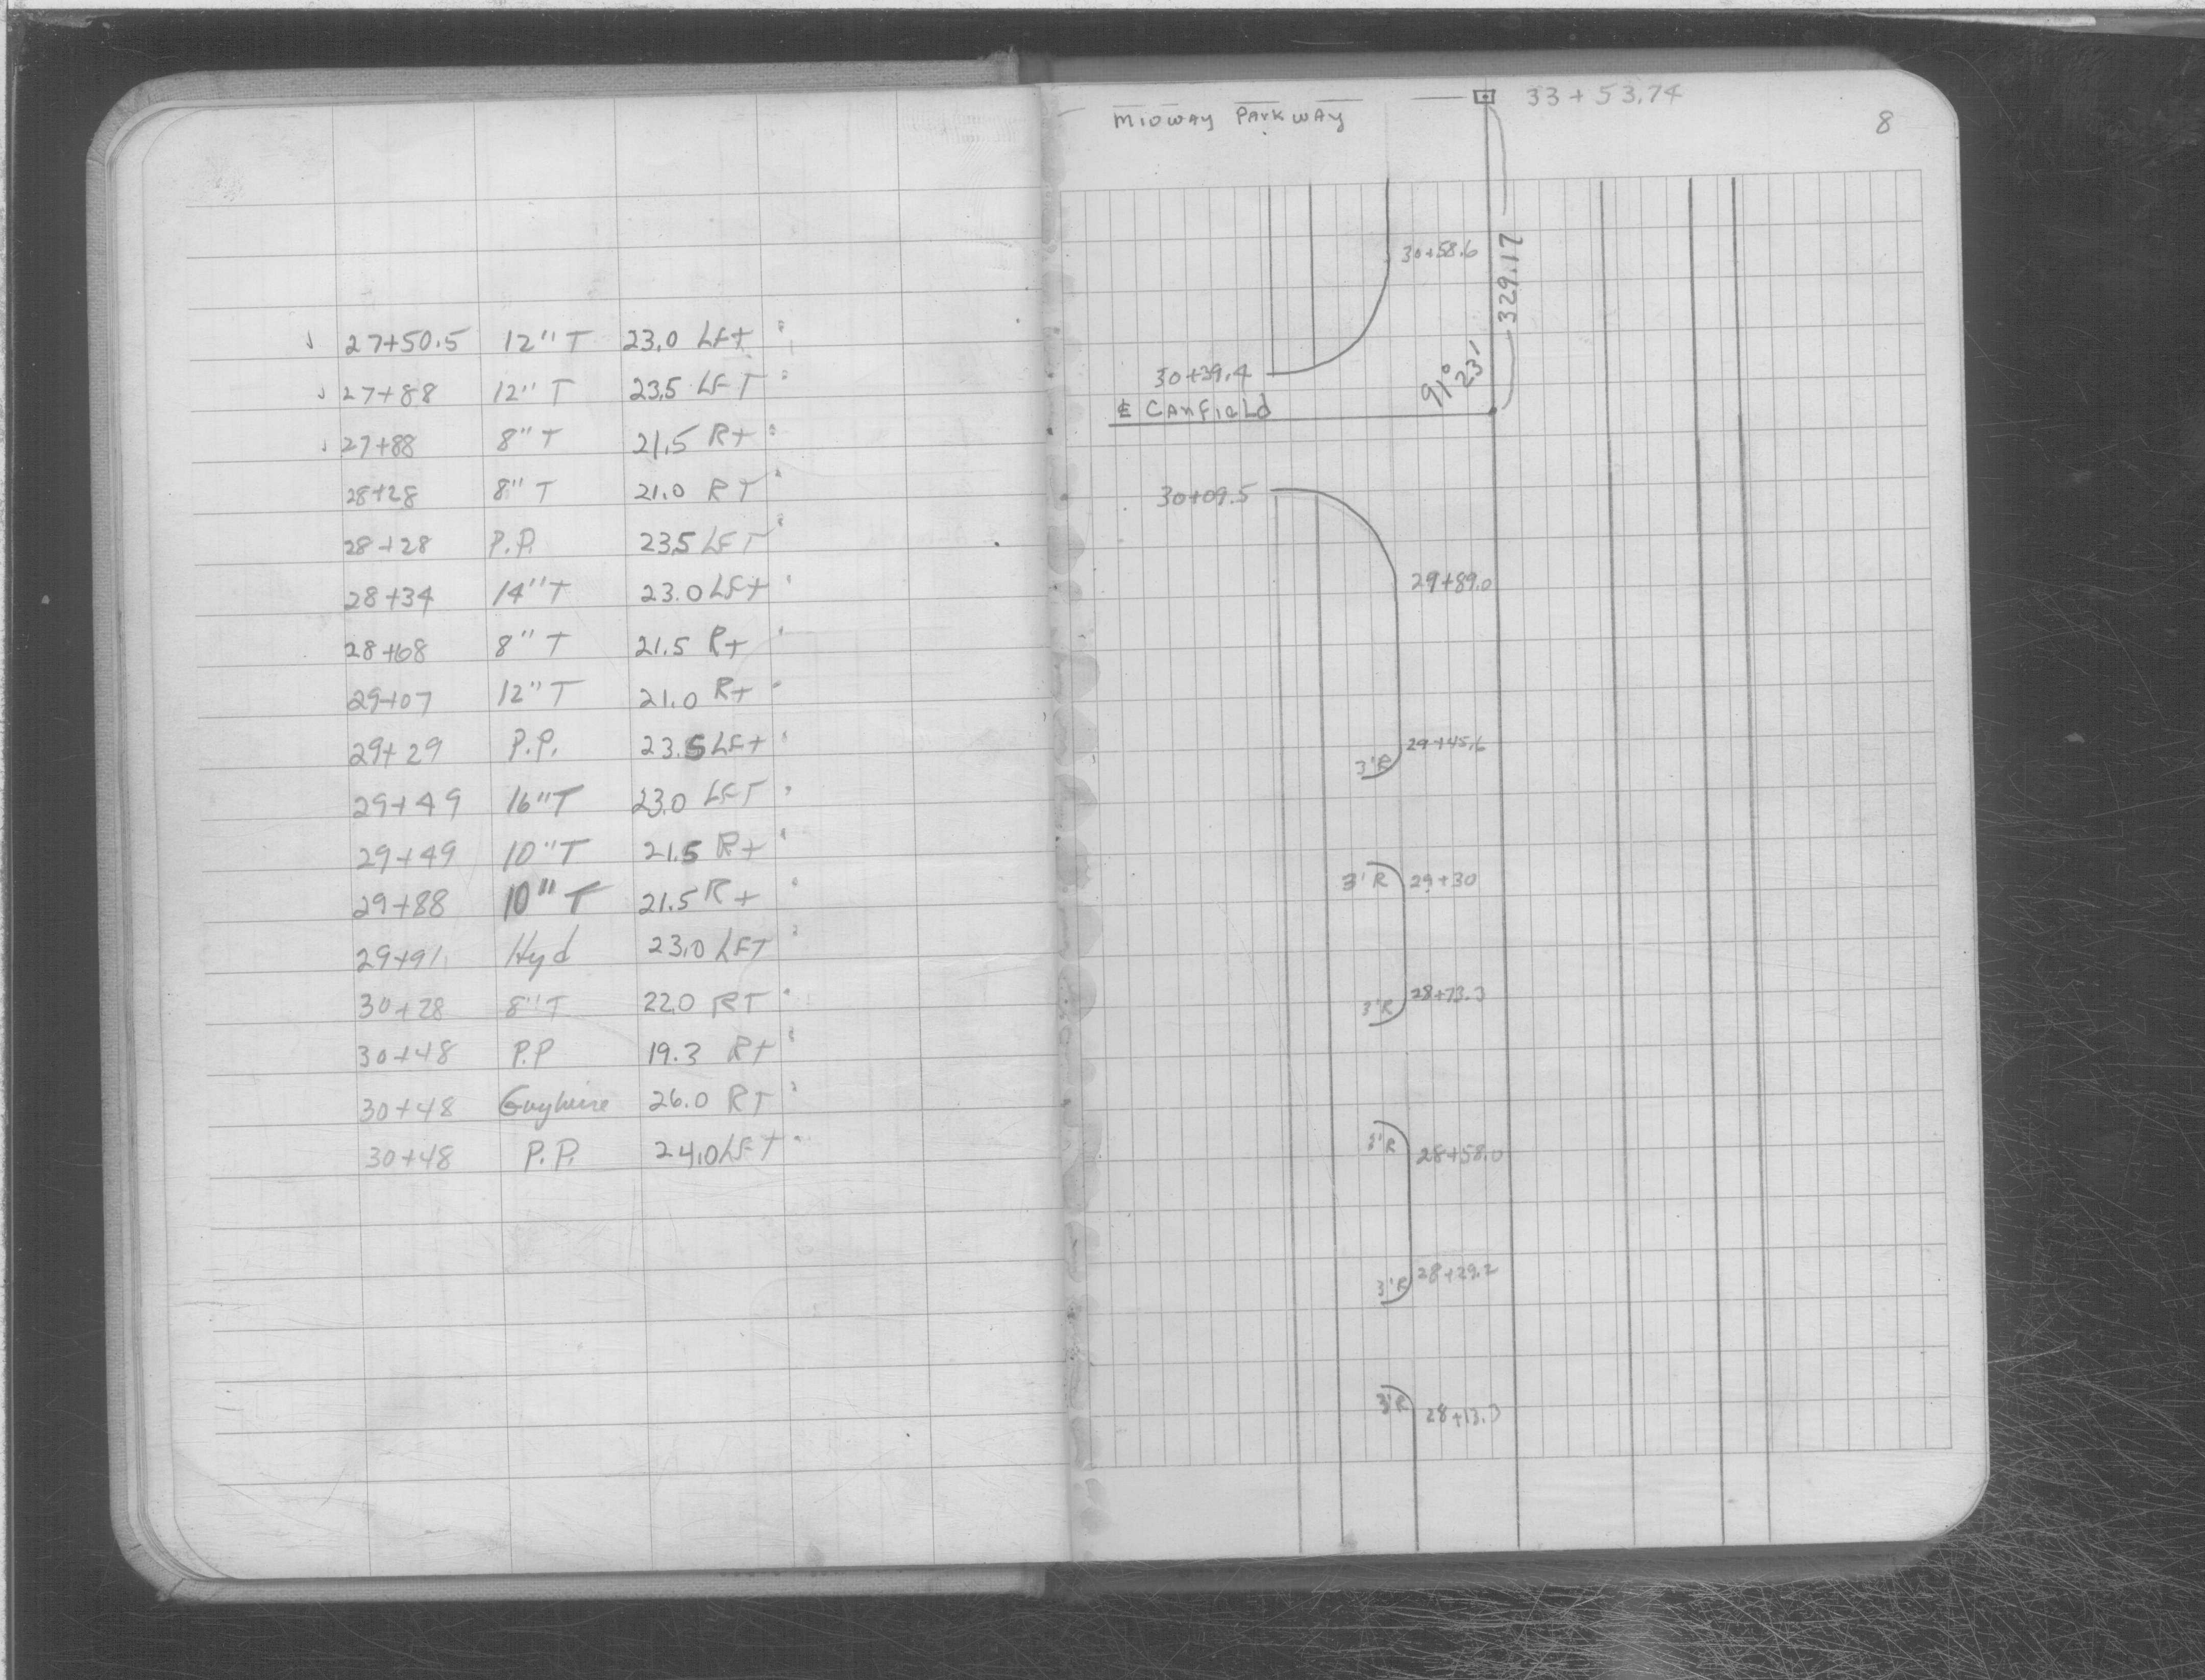 27+50.5 12" T 23.0 LFt
27+88 12" T 23.5 LFT
27+88 8" T 21.5 Rt
28+28 8" T 21.0 RT
28+28 P.P. 23.5 LFT
28+34 14" T 23.0 LFt
28+68 8" T 21.5 Rt
29+07 12" T 21.0 Rt
29+29 P.P. 23.5 LFt
29+49 16" T 23.0 LFT
29+49 10" T 21.5 Rt
29+88 10" T 21.5 Rt
29+91 Hyd 23.0 LFT
30+28 8" T 22.0 RT
30+48 P.P 19.3 Rt
30+48 Guywire 26.0 RT
30+48 P.P. 24.0 LFT
MIDWAY PARKWAY
33+53.74
8
30+58.6
329.17
30+39.4
91° 23'
℄ CANFIELD
30+09.5
29+89.0
29+45.6
3'R
3'R 29+30
28+73.3
3'R
3'R 28+58.0
3'R 28+29.2
3'R 28+13.3